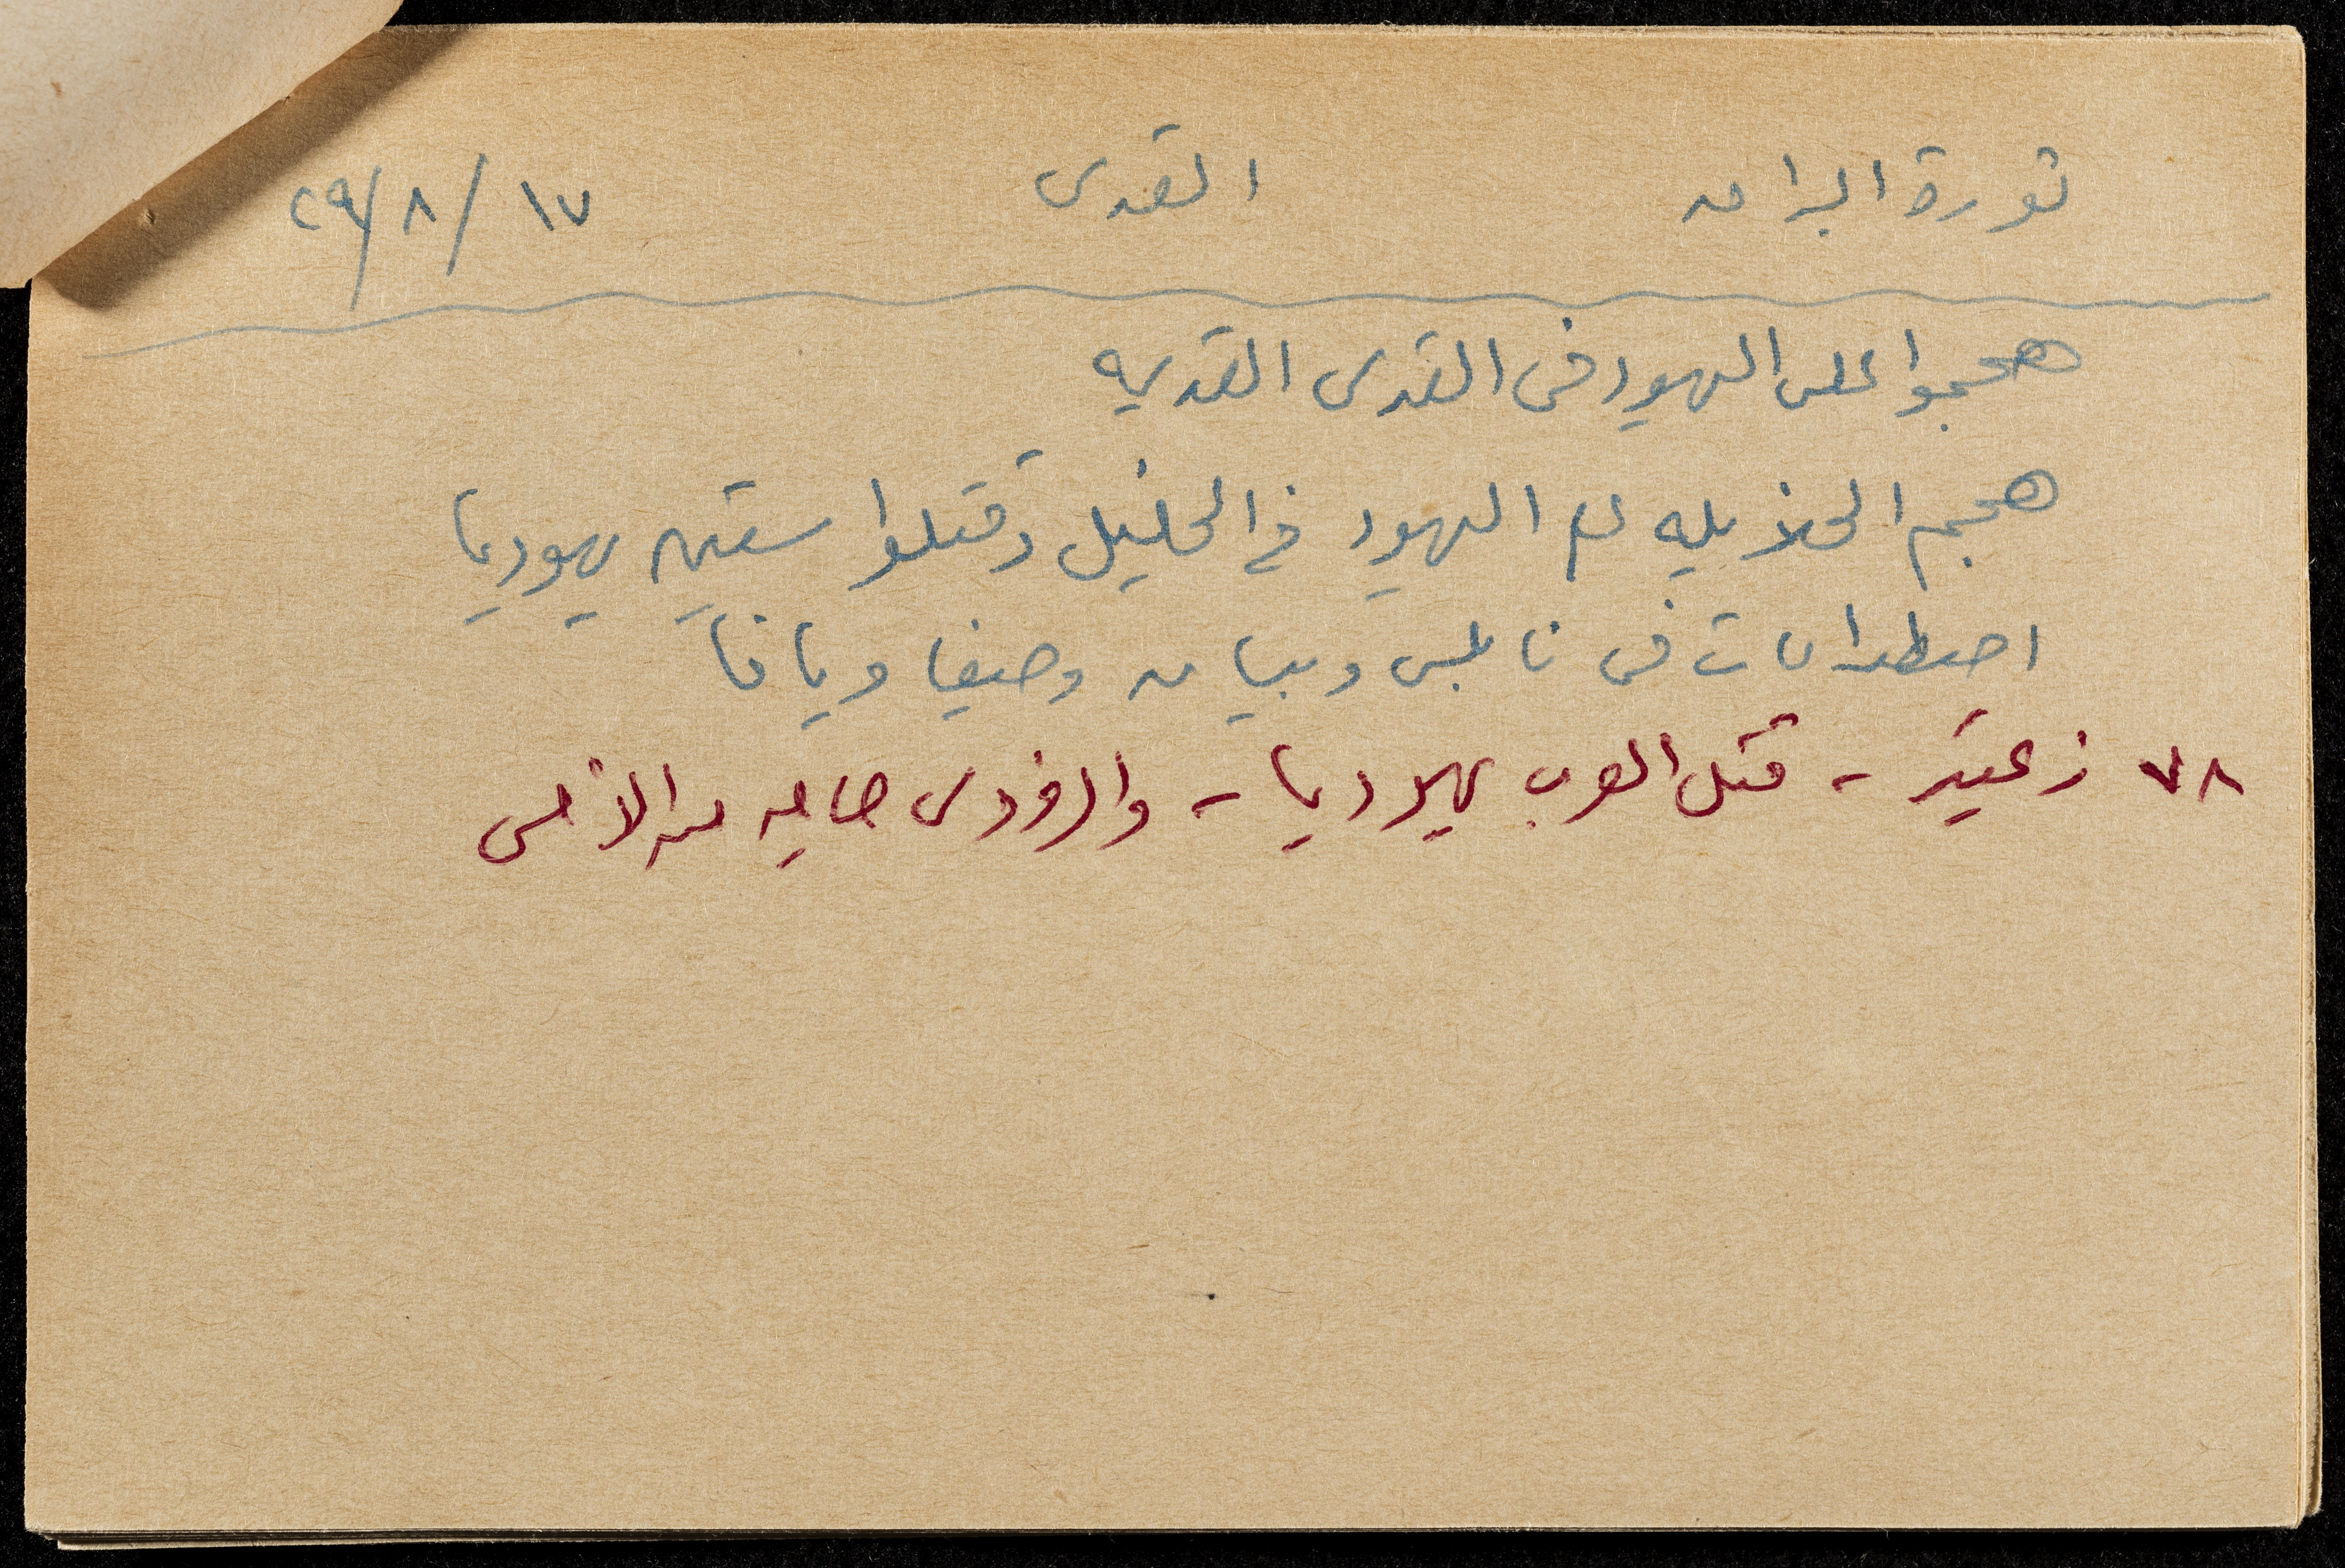 ثورة البراق القدس ١٧/٨/٢٩
هجموا على اليهود في القدس القديمه
هجم الخلايله على اليهود في الخليل وقتلوا ستين يهوديا
اضطرابات في نابلس وبيسان وحيفا ويافا
٧٨ زعيتر - قتل العرب يهوديا - والفردوس حاميه من الأمس